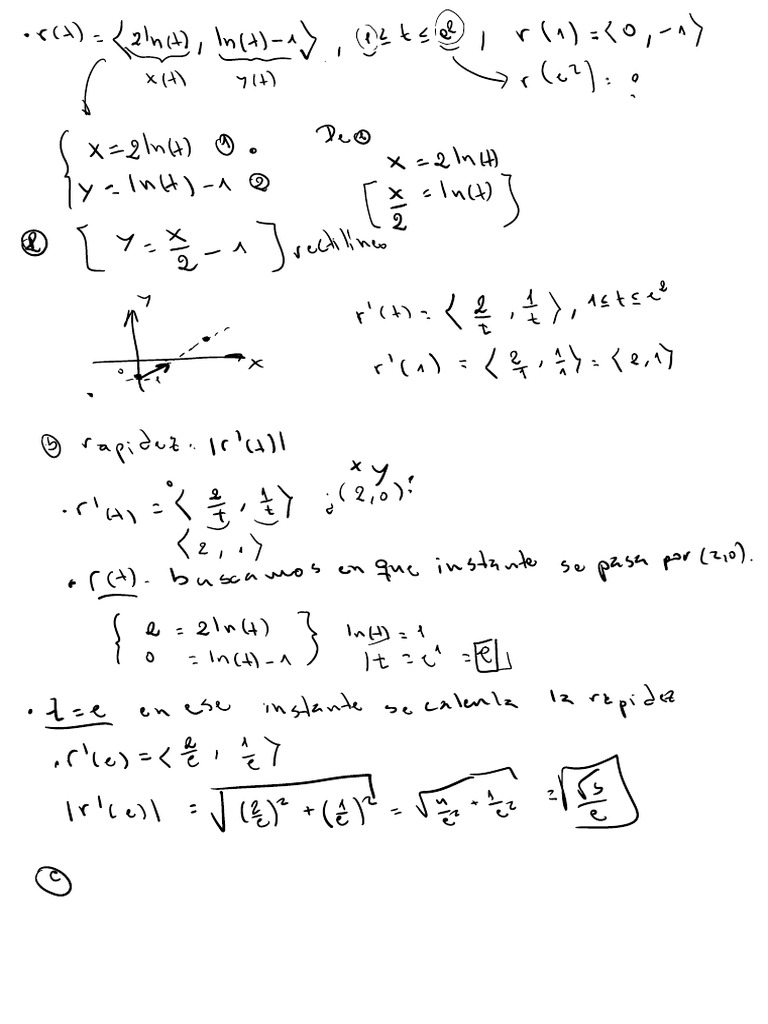 • r(t) = ⟨2ln(t), ln(t)-1⟩, 1 ≤ t ≤ e², r(1) = ⟨0, -1⟩
x(t) y(t) r(e²) = ?
{ x = 2ln(t) ① • De ①
y = ln(t) - 1 ② x = 2ln(t)
[ x/2 = ln(t) ]
② [ y = x/2 - 1 ] rectilíneo
y
r'(t) = ⟨2/t, 1/t⟩, 1 ≤ t ≤ e²
x
0
-1
r'(1) = ⟨2/1, 1/1⟩ = ⟨2, 1⟩
ⓑ rapidez. |r'(t)|
x y
• r'(t) = ⟨2/t, 1/t⟩ ¿(2,0)?
⟨2, 1⟩
• r(t). buscamos en que instante se pasa por (2,0).
{ 2 = 2ln(t) } ln(t) = 1
0 = ln(t) - 1 t = e¹ = e
• t = e en ese instante se calcula la rapidez
• r'(e) = ⟨2/e, 1/e⟩
|r'(e)| = √((2/e)² + (1/e)²) = √(4/e² + 1/e²) = √5/e
ⓒ